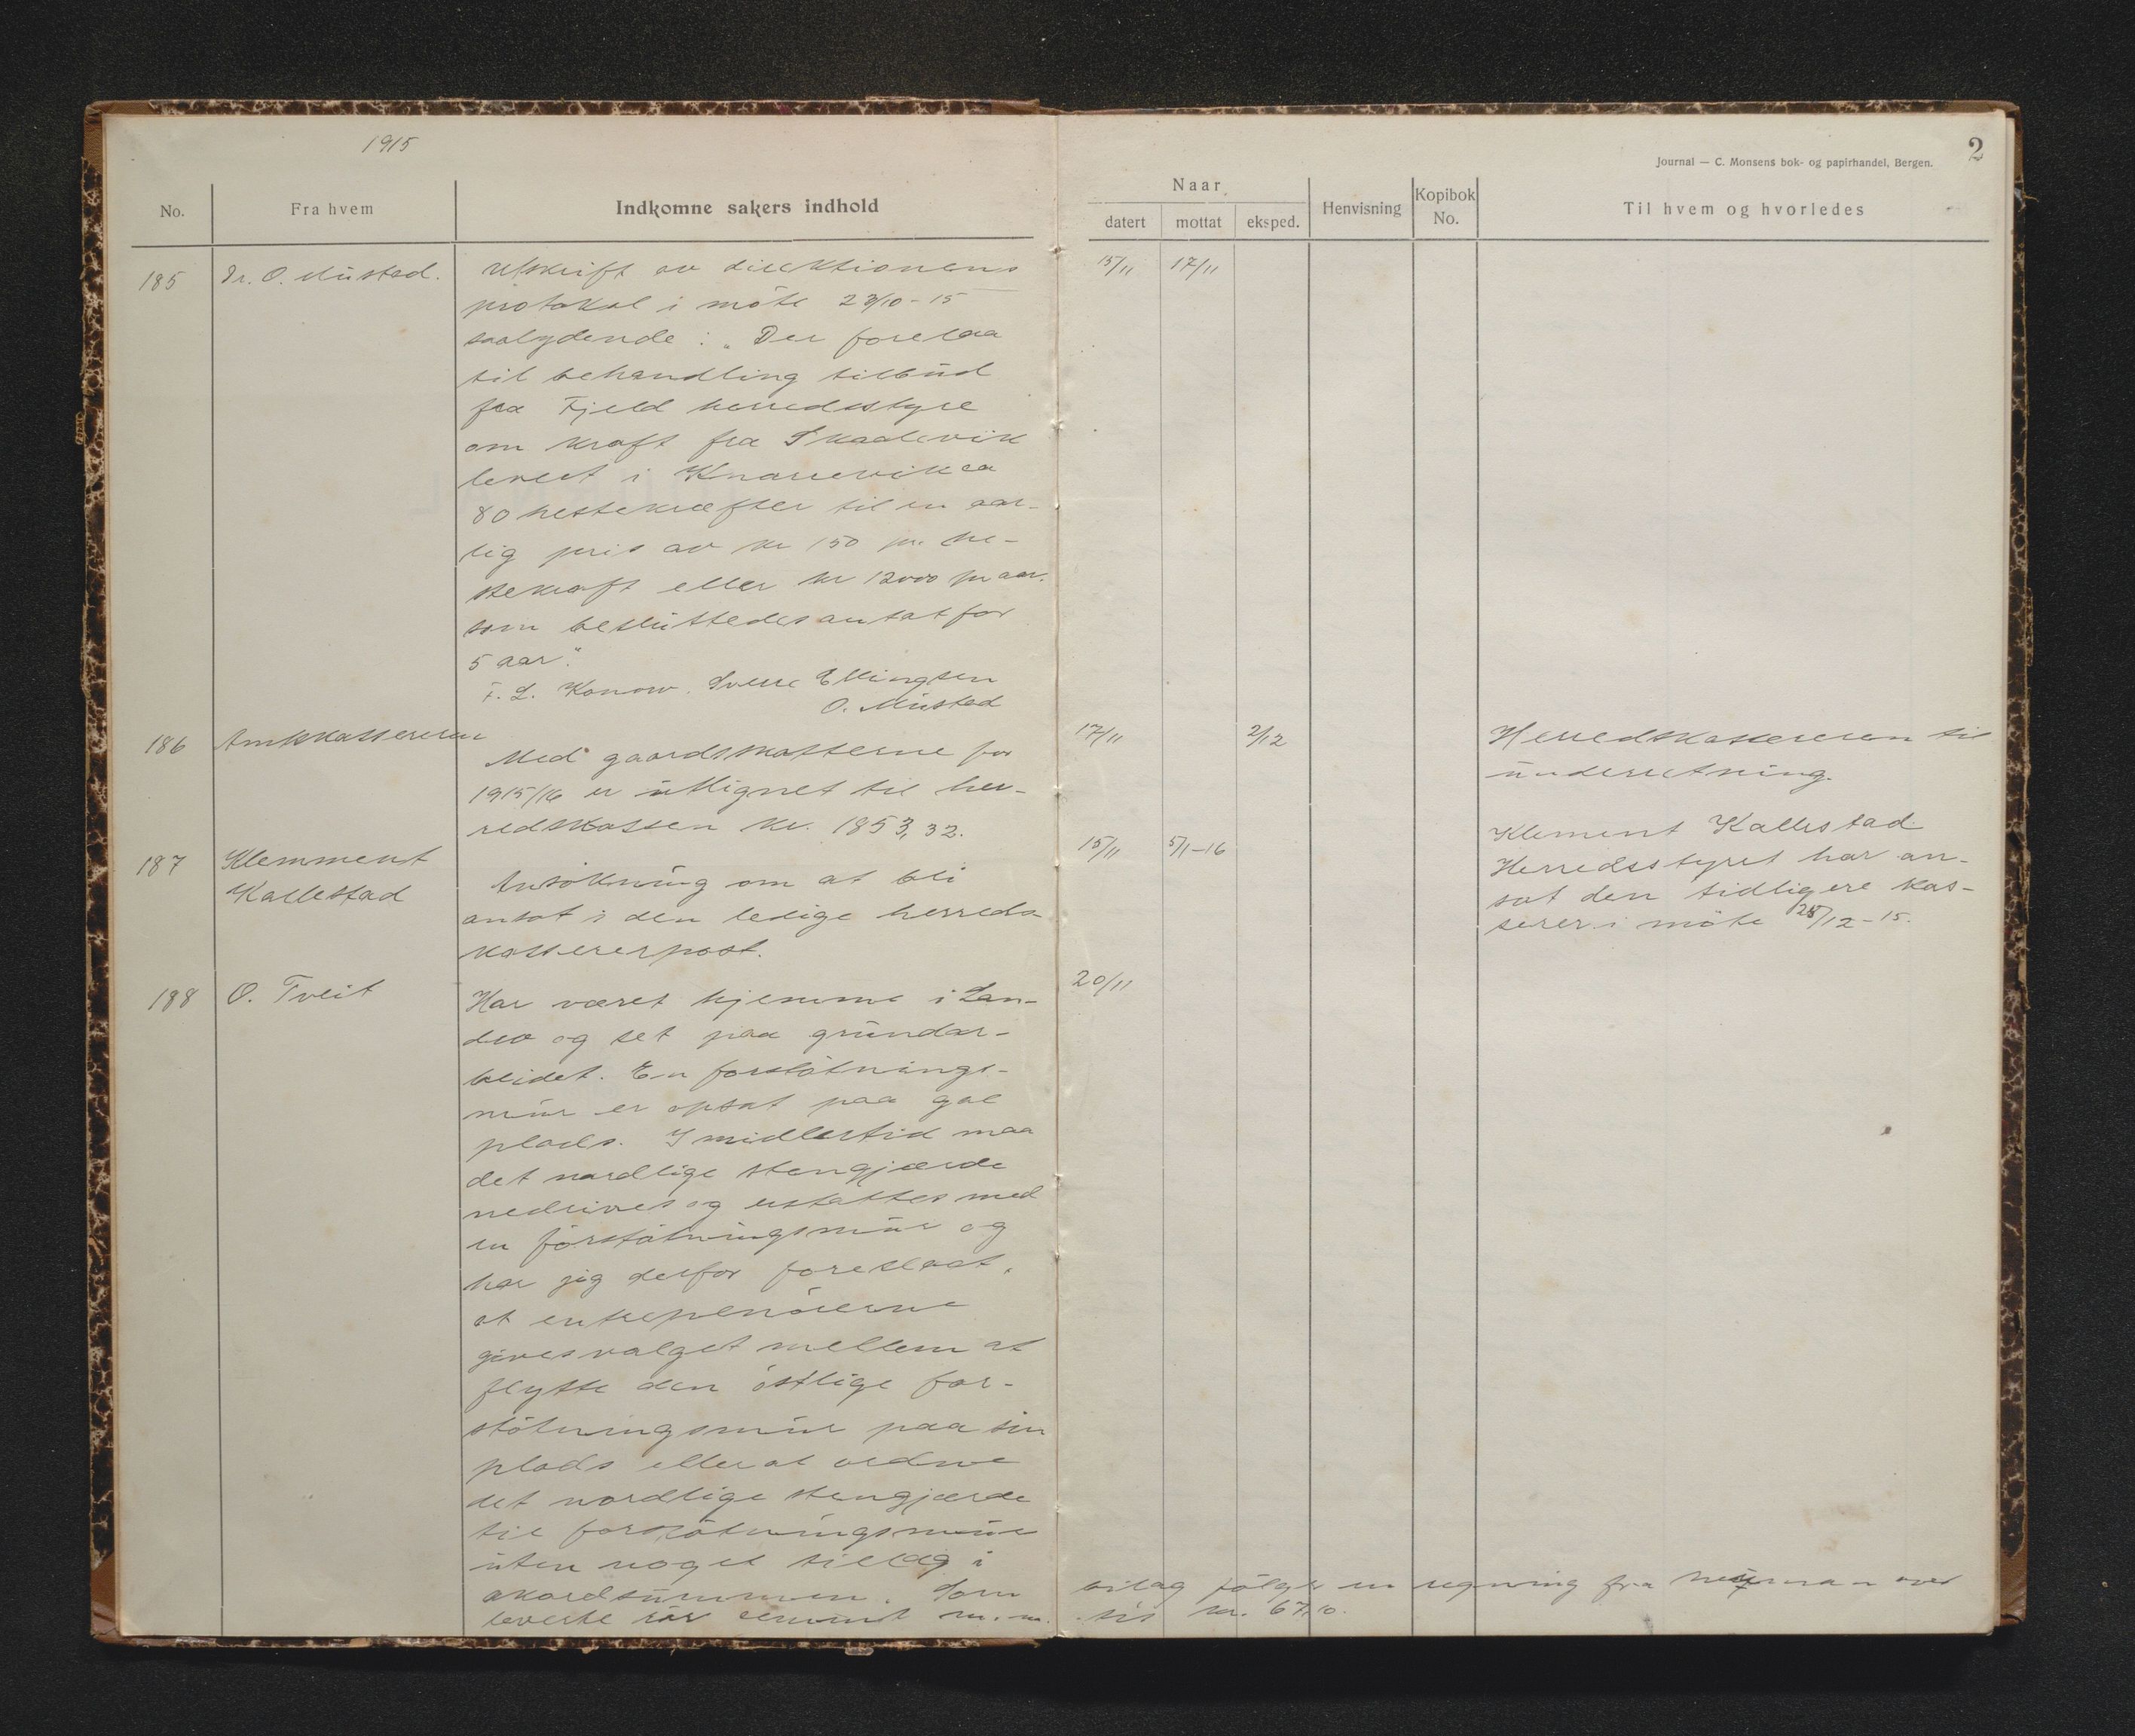 1915
No.
Fra hvem
Indkomne sakers indhold
185
Dr. O. Mustad.
Utskrift av direktionens
protokol i møte 23/10-15
saalydende: "Der forelaa
til behandling tilbud
fra Fjeld herredsstyre
om kraft fra Skaalevik
levert i Knarrevik ca
80 hestekræfter til en aar-
lig pris av kr 150 pr. he-
stekraft eller kr 12000 pr aar.
som besluttedes antat for
5 aar".
F. L. Konow. Sverre Ellingsen
O. Mustad
186
Amtskassereren
Med gaardskatterne for
1915/16 er utlignet til her-
redskassen kr. 1853,32.
187
Klemment
Kallestad
Ansøkning om at bli
ansat i den ledige herreds-
kassererpost.
188
O. Tveit
Har været hjemme i Lan-
dro og set paa grundar-
beidet. En forstøtnings-
mur er opsat paa gal
plads. Imidlertid maa
det nordlige stengjærde
nedrives og erstattes med
en forstøtningsmur og
har jeg derfor foreslaat,
at entreprenørerne
gives valget mellem at
flytte den østlige for-
støtningsmur paa sin
plads eller at ordne
det nordlige stengjærde
til forstøtningsmur
uten noget tillæg i
akordsummen. Som
leverte rør cement m.m.
Journal — C. Monsens bok- og papirhandel, Bergen.
2
Naar
datert
mottat
eksped.
Henvisning
Kopibok
No.
Til hvem og hvorledes
15/11
17/11
17/11
2/12
Herredskassereren til
underretning.
15/11
5/1-16
Klement Kallestad
Herredsstyret har an-
sat den tidligere kas-
serer i møte 28/12-15.
20/11
bilag følger en regning fra Neuman over
til kr. 67,10.